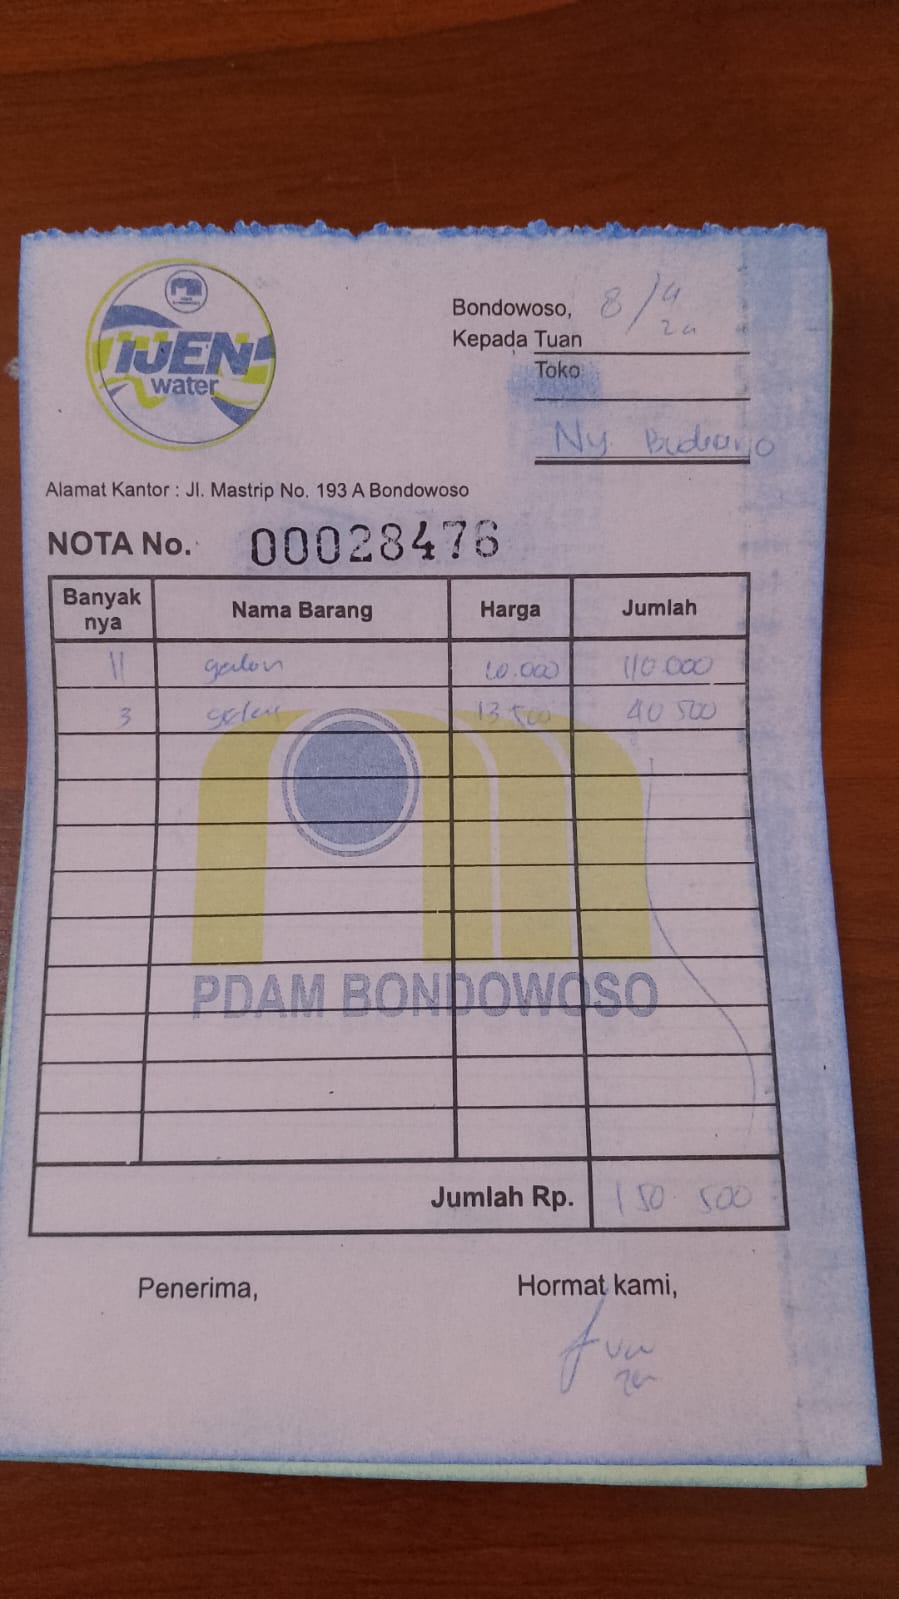 IJEN
water
Bondowoso, 8/4
Kepada Tuan
Toko
Ny.
Alamat Kantor : Jl. Mastrip No. 193 A Bondowoso
NOTA No. 00028476
Banyak nya Nama Barang Harga Jumlah
11 galon 10.000 110.000
3 galon 13 500 40 500
PDAM BONDOWOSO
Jumlah Rp. 150.500
Penerima, Hormat kami,